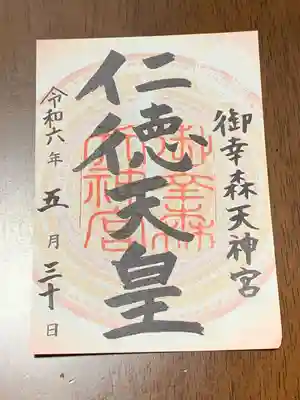 御幸森天神宮
仁徳天皇
令和六年五月三十日
御幸森
天神宮